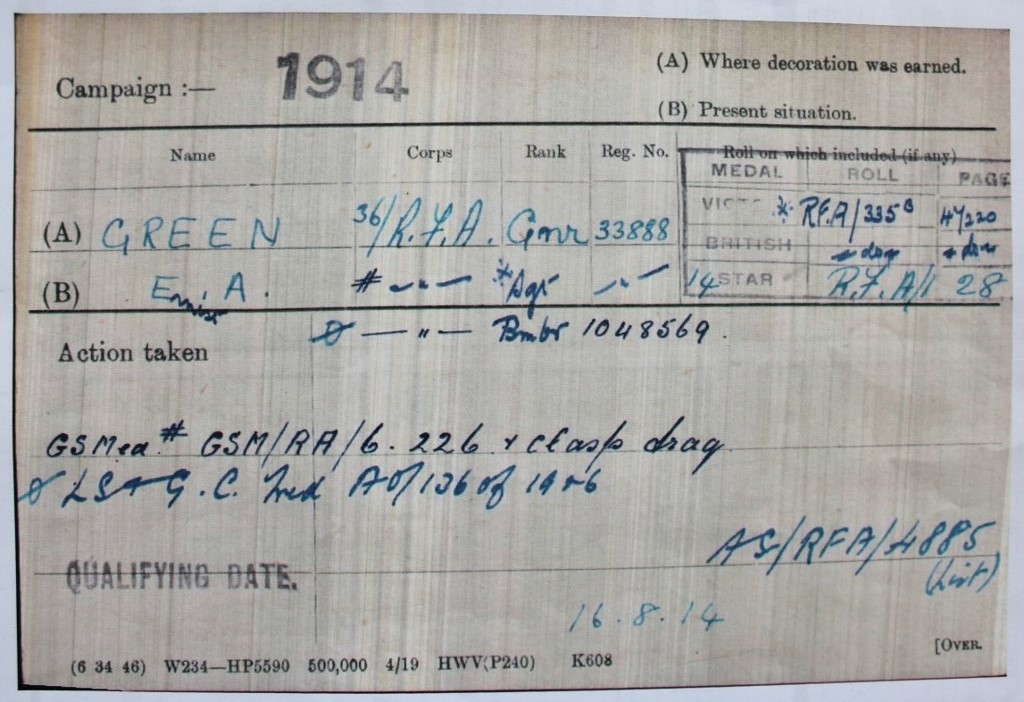 (A) Where decoration was earned.
Campaign :— 1914
(B) Present situation.
Name Corps Rank Reg. No. Roll on which included (if any)
MEDAL ROLL PAGE
(A) GREEN 36/R.F.A. Gnr 33888 VICT * RFA/335B 47220
BRITISH — do — — do —
(B) E. A. # — " — * Sgt — " — 14 STAR R.F.A/1 28
Ø — " — Bmbr 1048569.
Action taken
GS Med # GSM/RA/6. 226 + clasp Iraq
Ø LS + G.C. Med AO/136 of 1926
AS/RFA/4885
(List)
QUALIFYING DATE.
16.8.14
[OVER.
(6 34 46) W234—HP5590 500,000 4/19 HWV(P240) K608